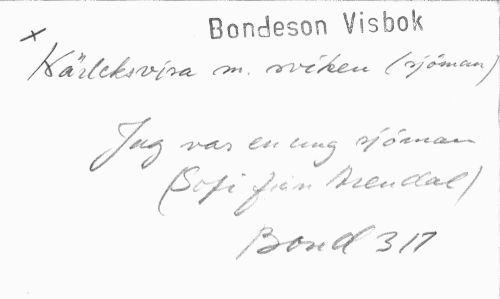 Bondeson Visbok
x
Kärleksvisa m. sviken (sjöman)
Jag var en ung sjöman
(Sofi från Arendal)
Bond 317